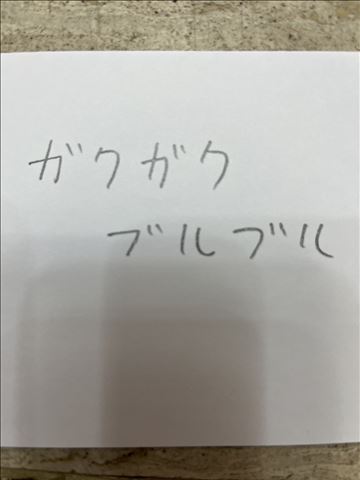 ガクガク
ブルブル